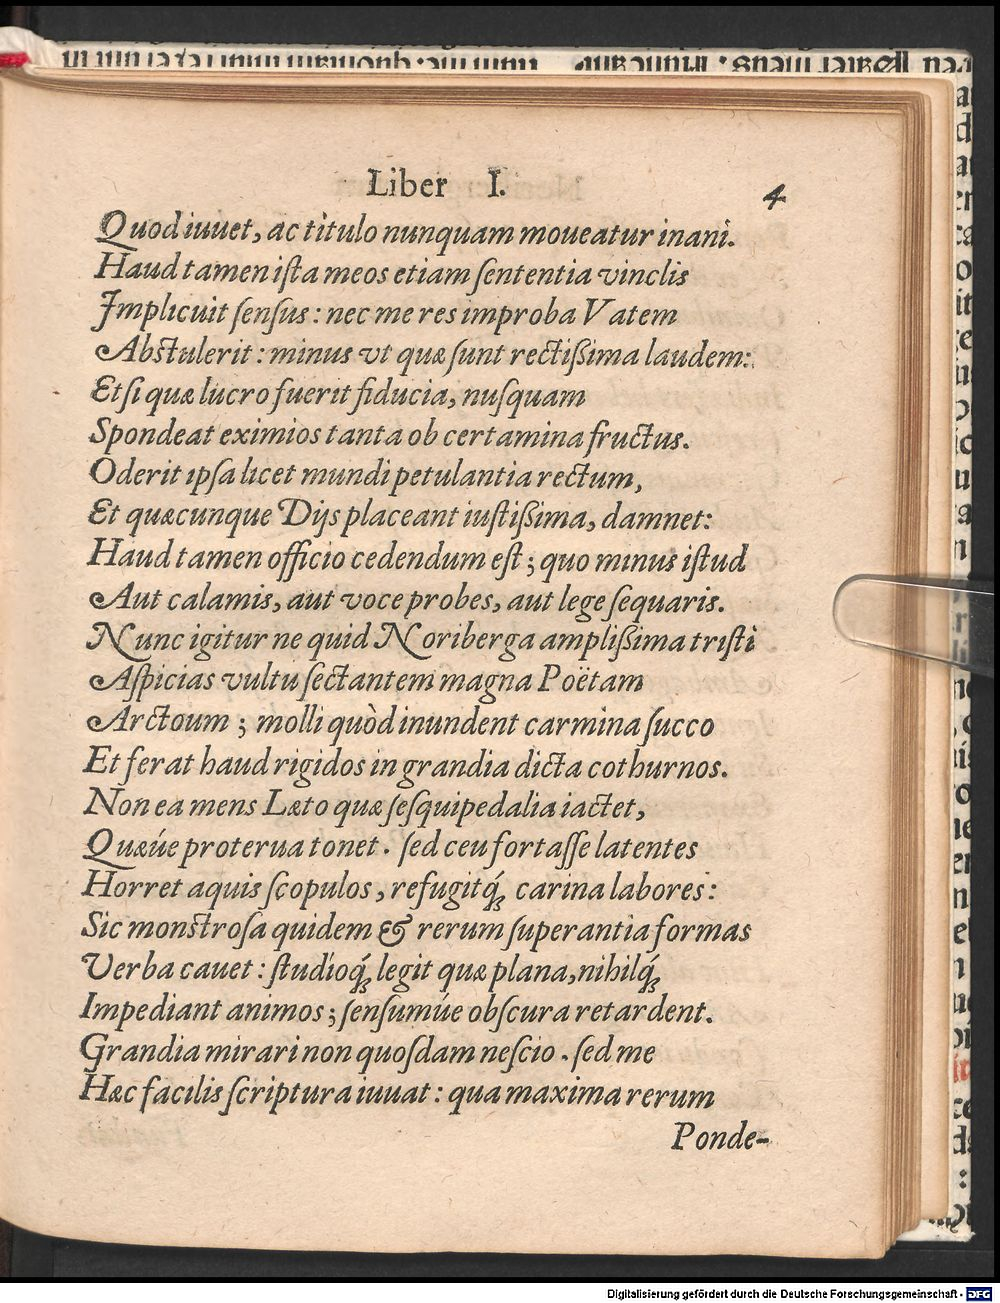 Liber I. 4
Quod iuuet, ac titulo nunquam moueatur inani.
Haud tamen iſta meos etiam ſententia vinclis
Implicuit ſenſus: nec me res improba Vatem
Abſtulerit: minus vt quæ ſunt rectißima laudem:
Et ſi quæ lucro fuerit fiducia, nuſquam
Spondeat eximios tanta ob certamina fructus.
Oderit ipſa licet mundi petulantia rectum,
Et quæcunque Dijs placeant iuſtißima, damnet:
Haud tamen officio cedendum eſt; quo minus iſtud
Aut calamis, aut voce probes, aut lege ſequaris.
Nunc igitur ne quid Noriberga amplißima triſti
Aſpicias vultu ſectantem magna Poëtam
Arctoum; molli quòd inundent carmina ſucco
Et ferat haud rigidos in grandia dicta cothurnos.
Non ea mens Læto quæ ſeſquipedalia iactet,
Quæúe proterua tonet. ſed ceu fortaſſe latentes
Horret aquis ſcopulos, refugitq́; carina labores:
Sic monſtroſa quidem & rerum ſuperantia formas
Verba cauet: ſtudioq́; legit quæ plana, nihilq́;
Impediant animos; ſenſumúe obſcura retardent.
Grandia mirari non quoſdam neſcio. ſed me
Hæc facilis ſcriptura iuuat: qua maxima rerum
Ponde-
Digitalisierung gefördert durch die Deutsche Forschungsgemeinschaft - DFG